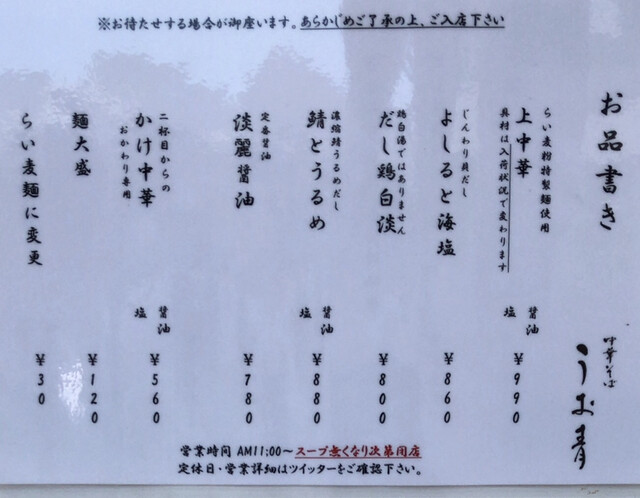 ※お待たせする場合が御座います。あらかじめご了承の上、ご入店下さい
お品書き
中華そば
うお青
らい麦粉特製麺使用
上中華
具材は入荷状況で変わります
醤油
塩
¥990
じんわり貝だし
よしると海塩
¥860
鶏白湯ではありません
だし鶏白淡
¥800
濃縮鯖うるめだし
鯖とうるめ
醤油
塩
¥880
定番醤油
淡麗醤油
¥780
二杯目からの
かけ中華
おかわり専用
醤油
塩
¥560
麺大盛
¥120
らい麦麺に変更
¥30
営業時間 AM11:00～スープ無くなり次第閉店
定休日・営業詳細はツイッターをご確認下さい。